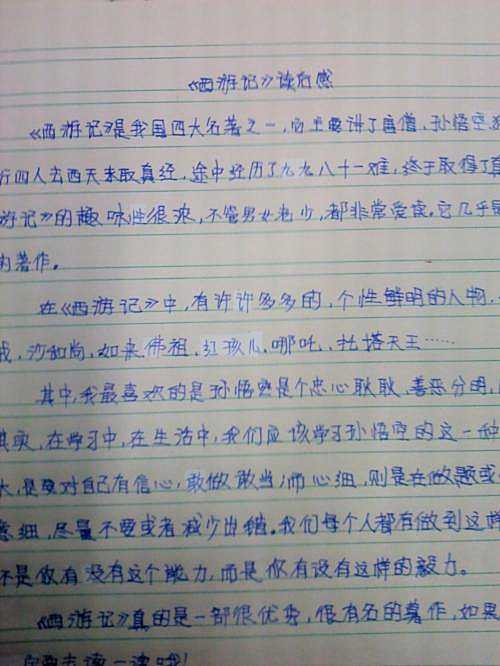 《西游记》读后感
《西游记》是我国四大名著之一，它主要讲了唐僧、孙悟空
行四人去西天来取真经，途中经历了九九八十一难，终于取得了
游记》的趣味性很浓，不管男女老少，都非常爱读。它几乎
的著作。
在《西游记》中，有许许多多的，个性鲜明的人物，
戒，沙和尚，如来佛祖，红孩儿、哪吒、托塔天王……
其中，我最喜欢的是孙悟空是个忠心耿耿、善恶分明，
其实，在学习中，在生活中，我们应该学习孙悟空的这一种
大，是要对自己有信心，敢做敢当；而心细，则是在做题或
意细，尽量不要或者减少出错。我们每个人都有做到这样
不是你有没有这个能力，而是你有没有这样的毅力。
《西游记》真的是一部很优秀，很有名的著作，如果
去读一读哦！